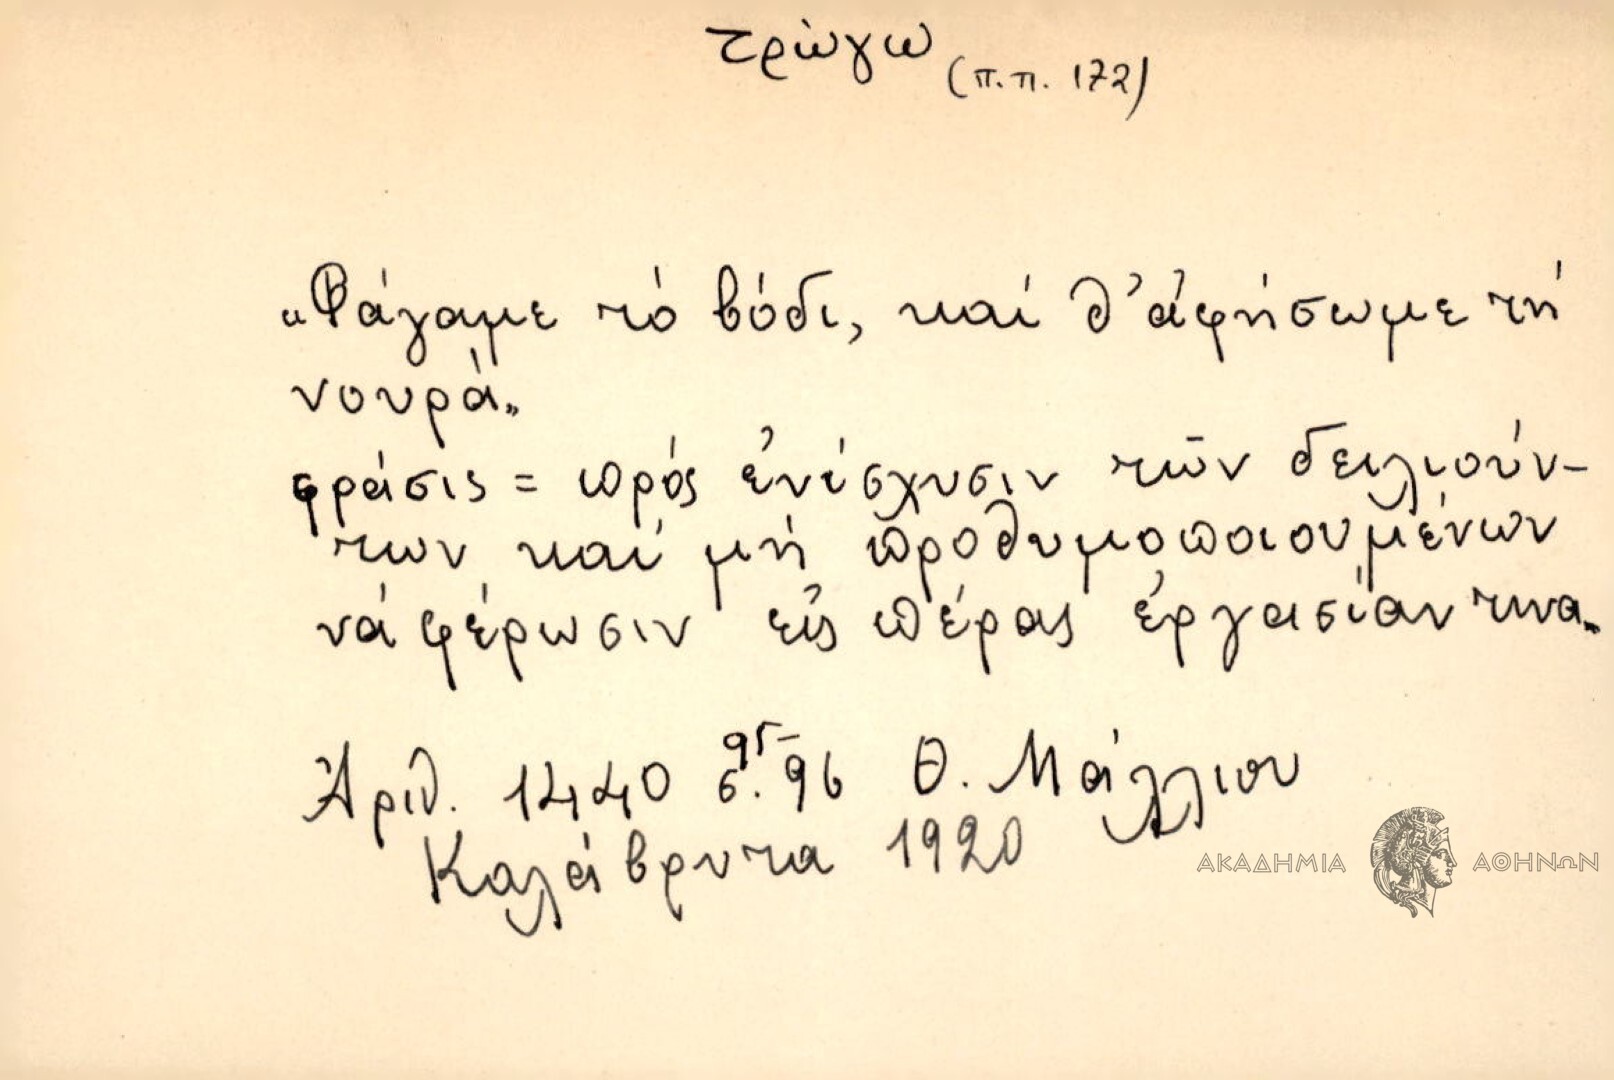 τρώγω
(π.π. 172)
«Φάγαμε τό βόδι, καί θ' ἀφήσωμε τή
νουρά»
φράσις = πρός ἐνίσχυσιν τῶν δειλιούν-
των καί μή προθυμοποιουμένων
νά φέρωσιν εἰς πέρας ἐργασίαν τινα.
Ἀριθ. 1440 σ. 95-96 Θ. Μάλλιου
Καλάβρυτα 1920
ΑΚΑΔΗΜΙΑ ΑΘΗΝΩΝ